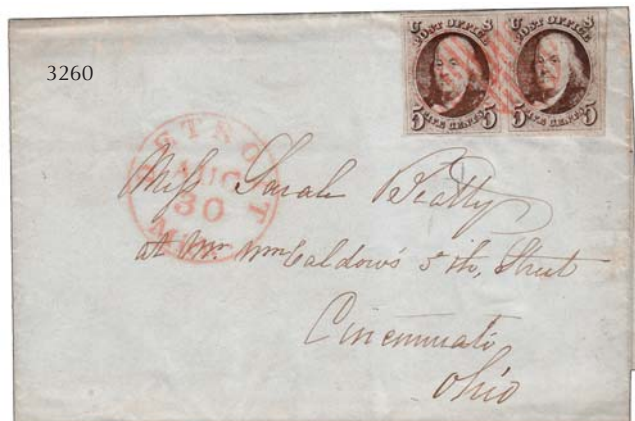 3260
U S
POST OFFICE
FIVE CENTS
5 5
U S
POST OFFICE
FIVE CENTS
5 5
DETROIT
AUG
30
Miss Sarah Beatty
at Mr. Wm Caldow's 5th, Street
Cincinnati
Ohio